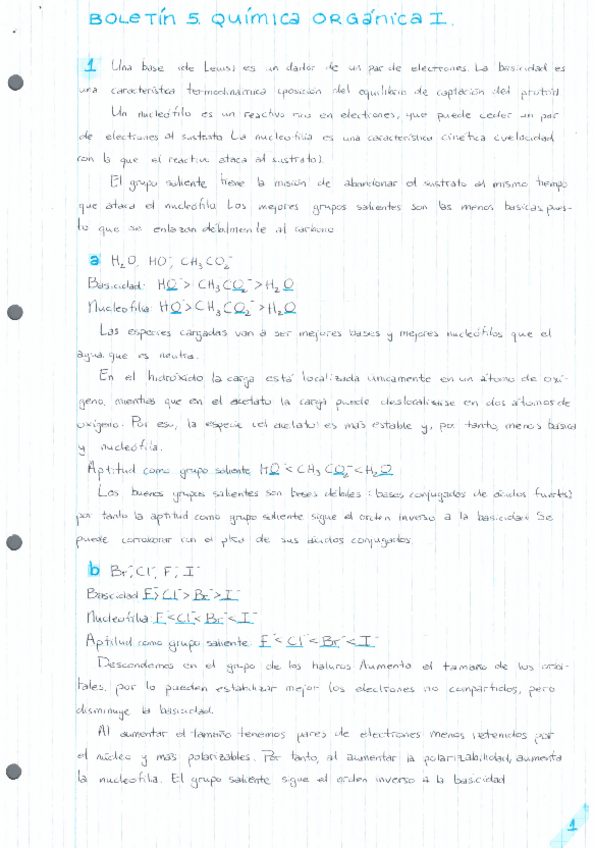 BOLETÍN 5. QUÍMICA ORGÁNICA I.
1 Una base (de Lewis) es un dador de un par de electrones. La basicidad es
una característica termodinámica (posición del equilibrio de captación del protón)
Un nucleófilo es un reactivo rico en electrones, que puede ceder un par
de electrones al sustrato La nucleofilia es una característica cinética (velocidad
con la que el reactivo ataca al sustrato).
El grupo saliente tiene la misión de abandonar el sustrato al mismo tiempo
que ataca el nucleófilo. Los mejores grupos salientes son las menos básicas, pues-
to que se enlazan débilmente al carbono
a H₂O, HO⁻, CH₃CO₂⁻
Basicidad: HO⁻ > CH₃CO₂⁻ > H₂O
Nucleofilia: HO⁻ > CH₃CO₂⁻ > H₂O
Las especies cargadas van a ser mejores bases y mejores nucleófilos que el
agua, que es neutra.
En el hidróxido la carga está localizada únicamente en un átomo de oxí-
geno, mientras que en el acetato la carga puede deslocalizarse en dos átomos de
oxígeno. Por eso, la especie (el acetato) es más estable y, por tanto, menos básica
y nucleófila.
Aptitud como grupo saliente HO⁻ < CH₃CO₂⁻ < H₂O
Los buenos grupos salientes son bases débiles (bases conjugadas de ácidos fuertes)
por tanto la aptitud como grupo saliente sigue el orden inverso a la basicidad. Se
puede corroborar con el pKa de sus ácidos conjugados.
b Br⁻, Cl⁻, F⁻, I⁻
Basicidad F⁻ > Cl⁻ > Br⁻ > I⁻
Nucleofilia: F⁻ < Cl⁻ < Br⁻ < I⁻
Aptitud como grupo saliente: F⁻ < Cl⁻ < Br⁻ < I⁻
Descendemos en el grupo de los haluros. Aumenta el tamaño de los orbi-
tales, por lo pueden estabilizar mejor los electrones no compartidos, pero
disminuye la basicidad.
Al aumentar el tamaño tenemos pares de electrones menos retenidos por
el núcleo y más polarizables. Por tanto, al aumentar la polarizabilidad, aumenta
la nucleofilia. El grupo saliente sigue el orden inverso a la basicidad
1